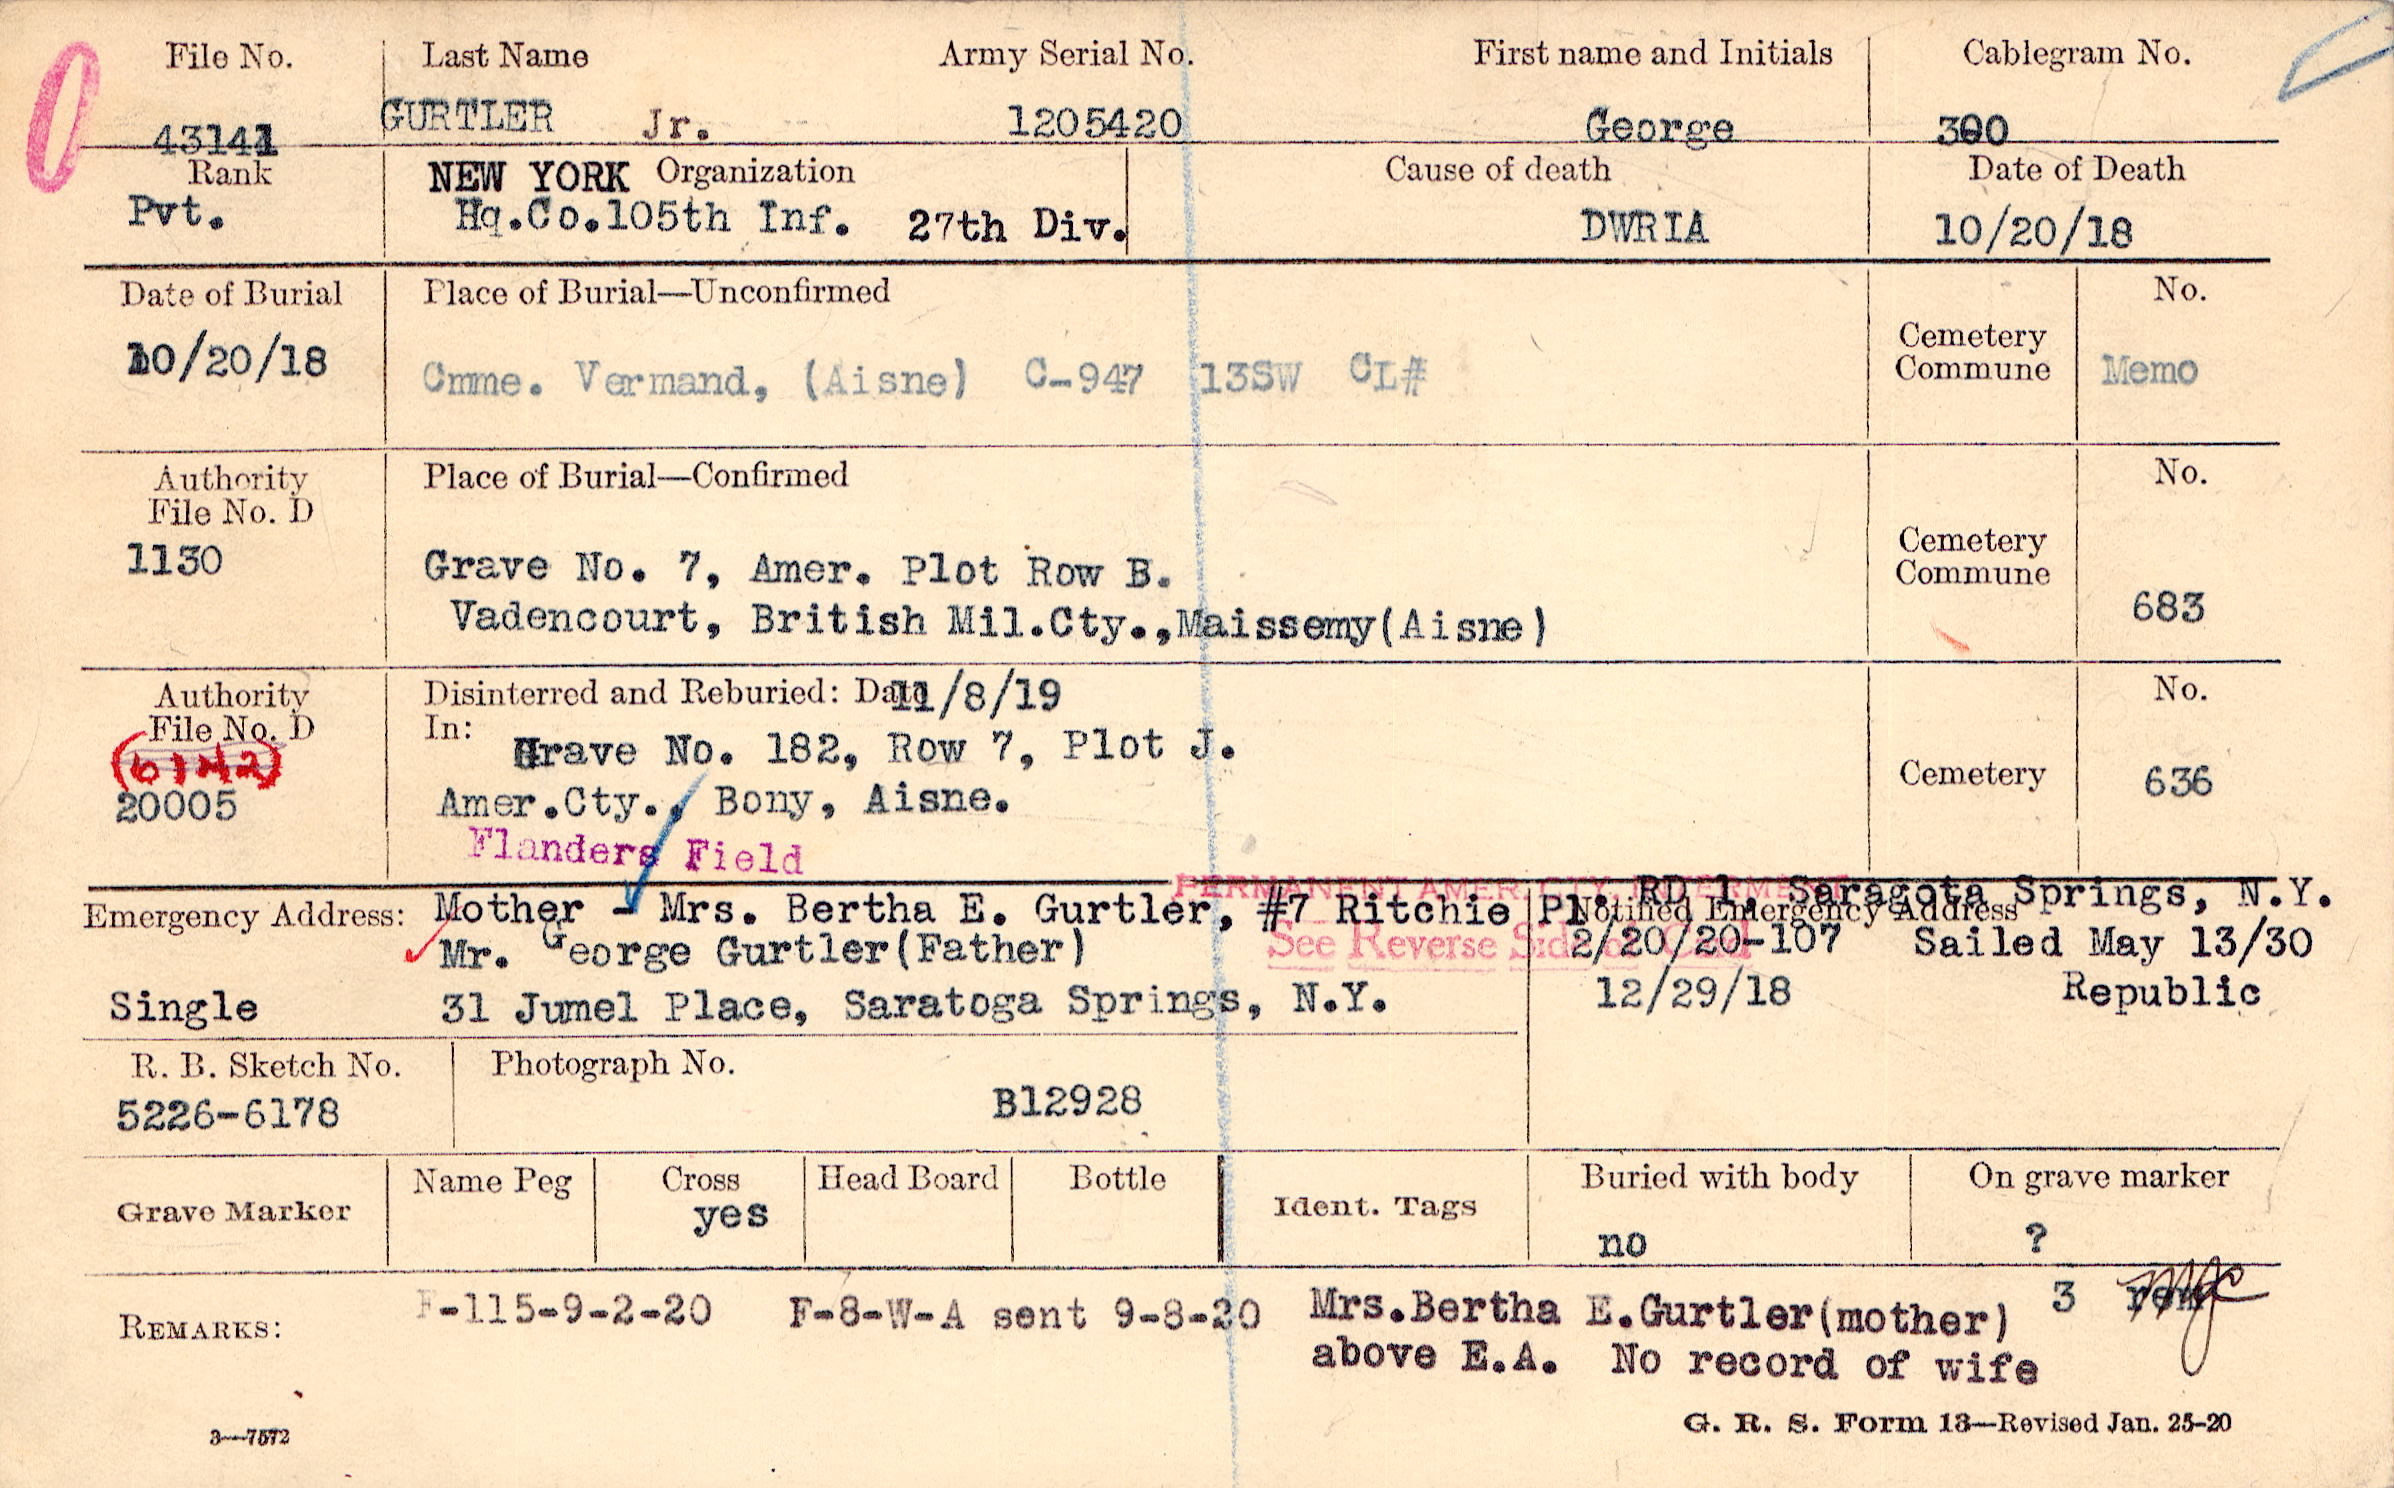 File No. Last Name Army Serial No. First name and Initials Cablegram No.
43141 GURTLER Jr. 1205420 George 300
Rank NEW YORK Organization Cause of death Date of Death
Pvt. Hq.Co.105th Inf. 27th Div. DWRIA 10/20/18
Date of Burial Place of Burial—Unconfirmed No.
10/20/18 Cmme. Vermand, (Aisne) C-947 13SW CL# Cemetery Commune Memo
Authority File No. D Place of Burial—Confirmed No.
1130 Grave No. 7, Amer. Plot Row B. Cemetery Commune
Vadencourt, British Mil.Cty.,Maissemy(Aisne) 683
Authority Disinterred and Reburied: Date 11/8/19 No.
File No. D In: Grave No. 182, Row 7, Plot J.
(6142) Cemetery 636
20005 Amer.Cty., Bony, Aisne.
Flanders Field
PERMANENT AMER. CTY. INTERMENT
See Reverse Side of Card
Emergency Address: Mother - Mrs. Bertha E. Gurtler, #7 Ritchie Pl. RD 1, Saragota Springs, N.Y.
Notified Emergency Address
Mr. George Gurtler(Father) 2/20/20-107 Sailed May 13/30
Single 31 Jumel Place, Saratoga Springs, N.Y. 12/29/18 Republic
R. B. Sketch No. Photograph No.
5226-6178 B12928
Grave Marker Name Peg Cross Head Board Bottle Ident. Tags Buried with body On grave marker
yes no ?
REMARKS: F-115-9-2-20 F-8-W-A sent 9-8-20 Mrs.Bertha E.Gurtler(mother) 3
above E.A. No record of wife
3—7572 G. R. S. Form 13—Revised Jan. 25-20